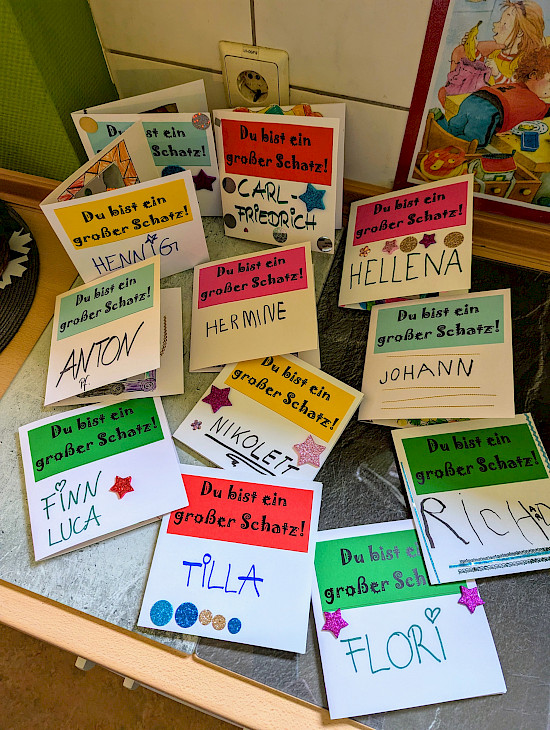 Du bist ein
Schatz!
Du bist ein
großer Schatz!
CARL-
FRIEDRICH
Du bist ein
großer Schatz!
HENNIG
Du bist ein
großer Schatz!
HELLENA
Du bist ein
großer Schatz!
HERMINE
Du bist ein
großer Schatz!
ANTON
Du bist ein
großer Schatz!
JOHANN
Du bist ein
großer Schatz!
NIKOLETT
Du bist ein
großer Schatz!
FINN
LUCA
Du bist ein
großer Schatz!
Du bist ein
großer Schatz!
TILLA
Du bist ein
großer Sch
FLORI